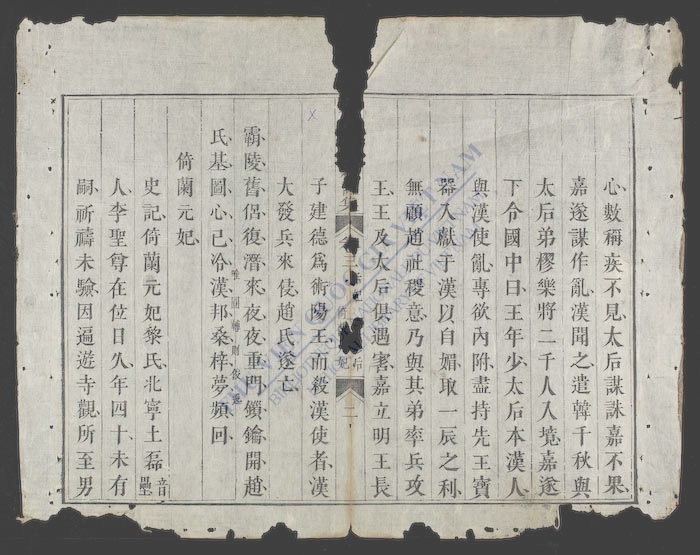 心數稱疾不見太后謀誅嘉不果
嘉遂謀作亂漢聞之遣韓千秋與
太后弟樛樂將二千人入境嘉遂
下令國中曰王年少太后本漢人
與漢使亂專欲內附盡持先王寶
器入獻于漢以自媚取一辰之利
無顧趙社稷意乃與其弟率兵攻
王王及太后俱遇害嘉立明王長
二
子建德爲術陽王而殺漢使者漢
大發兵來伐趙氏遂亡
霸陵舊侶復潛來夜夜重門鎖鑰開趙
氏基圖心已冷漢邦桑梓夢頻回
倚蘭元妃
史記倚蘭元妃黎氏北寧土磊音壘
人李聖尊在位日久年四十未有
嗣祈禱未驗因遍遊寺觀所至男
VIEN QUOC GIA VIET NAM